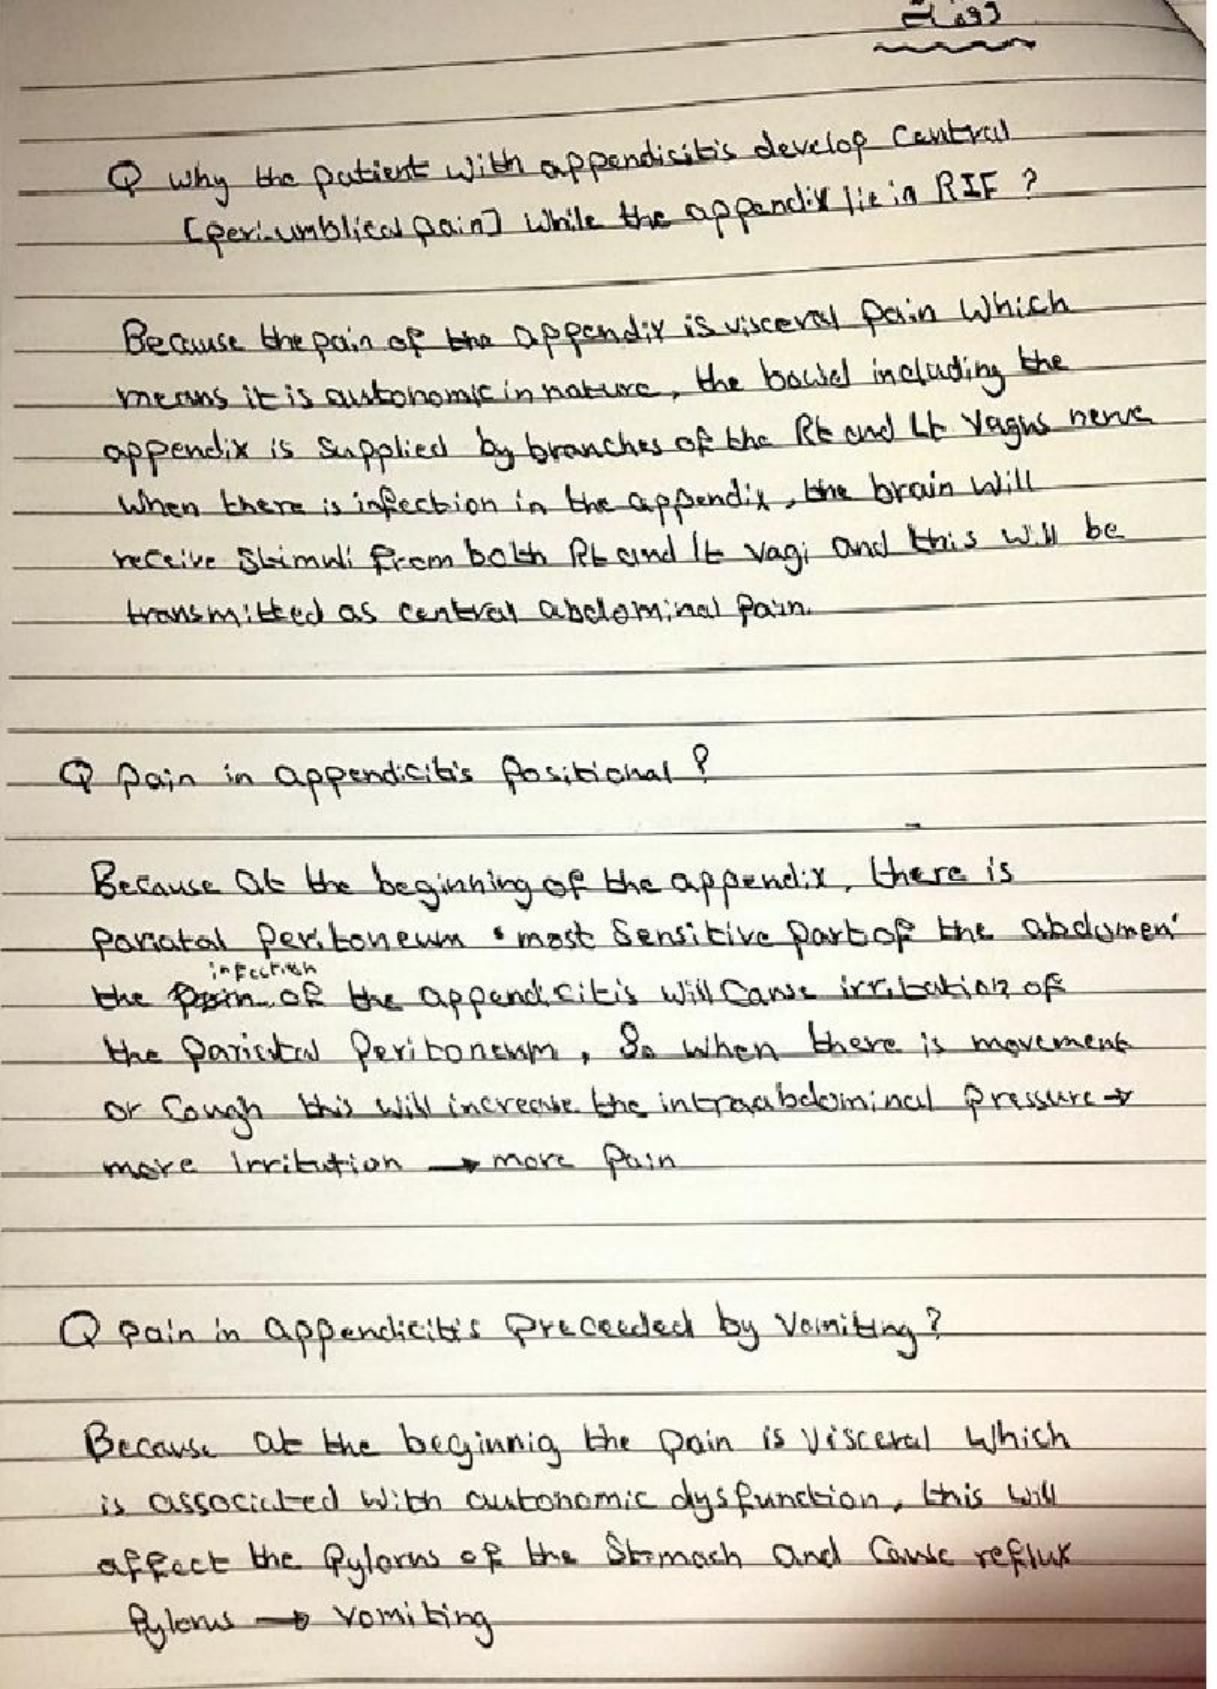 Q why the patient with appendisitis develop central
[peri-umblical pain] while the appendix lie in RIF ?
Because the pain of the appendix is visceral pain which
means it is autonomic in nature, the bowel including the
appendix is supplied by branches of the Rt and Lt Vagus nerve
when there is infection in the appendix, the brain will
receive stimuli from both Rt and lt vagi and this will be
transmitted as central abdominal pain.
Q Pain in appendicitis positional ?
Because at the beginning of the appendix, there is
pariatal peritoneum • most sensitive part of the abdomen'
infection
the pain of the appendicitis will cause irritation of
the parietal peritoneum, So when there is movement
or Cough this will increase the intraabdominal pressure →
more irritution → more pain
Q pain in appendicitis preceeded by vomiting?
Because at the beginnig the pain is visceral which
is associated with autonomic dysfunction, this will
affect the Pylorus of the Stomach and Cause reflux
Pylorus → vomiting